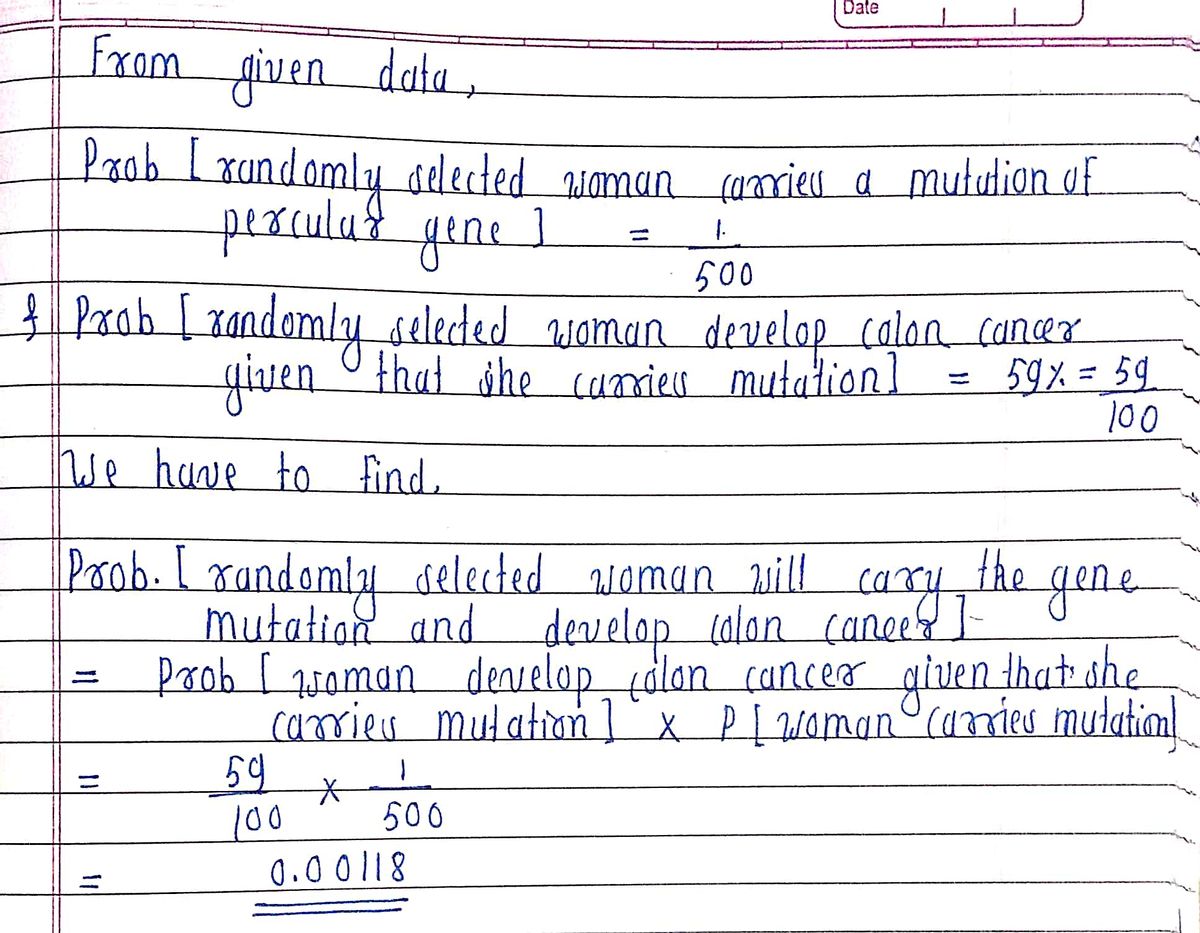 Date
From given data,
Prob [ randomly selected woman carries a mutation of
percular gene ] = 1
500
& Prob [ randomly selected woman develop colon cancer
given that she carries mutation ] = 59% = 59
100
We have to find,
Prob. [ randomly selected woman will cary the gene
mutation and develop colon caneer ]
= Prob [ woman develop colon cancer given that she
carries mutation ] x P [ woman carries mutation]
= 59 x 1
100 500
= 0.00118